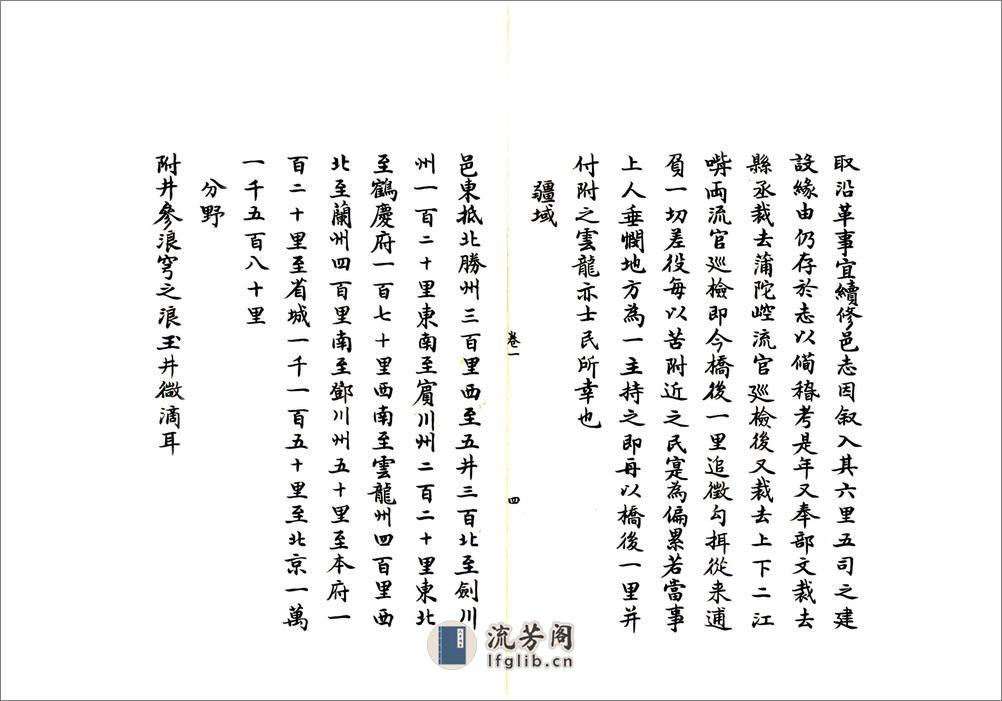 取沿革事宜續修邑志因叙入其六里五司之建
設緣由仍存於志以備稽考是年又奉部文裁去
縣丞裁去蒲陀崆流官廵檢後又裁去上下二江
嘴両流官廵檢即今橋後一里追徵勾揖從来逋
負一切差役每以苦附近之民寔為偏累若當事
上人垂憫地方為一主持之即再以橋後一里并
付附之雲龍亦士民所幸也
疆域
邑東抵北勝州三百里西至五井三百北至劍川
州一百二十里東南至賓川州二百二十里東北
至鶴慶府一百七十里西南至雲龍州四百里西
北至蘭州四百里南至鄧川州五十里至本府一
百二十里至省城一千一百五十里至北京一萬
一千五百八十里
分野
附井參浪穹之浪玉井微滴耳
卷一
四
流芳阁
lfglib.cn